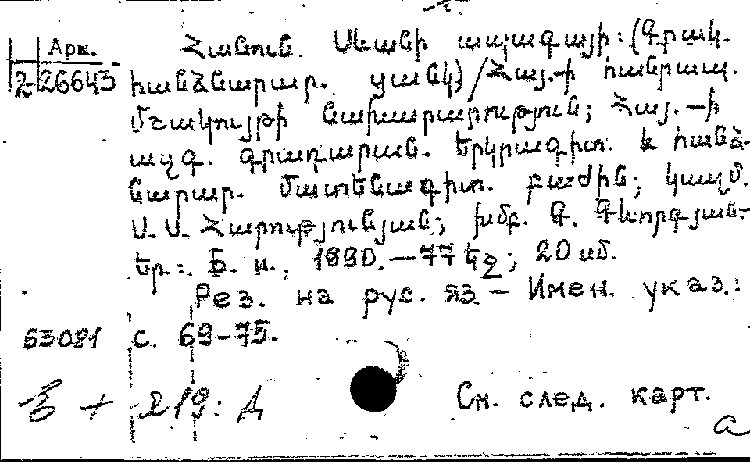 Арк.
2-26643
Հանուն Սևանի ապագայի: (Գրակ.
հանձնարար. ցանկ) / Հայ.-ի հանրապ.
մշակույթի նախարարություն; Հայ.-ի
ազգ. գրադարան. Երկրագիտ. և հանձ-
նարար. մատենագիտ. բաժին; կազմ.
Ս. Ս. Հարությունյան; խմբ. Գ. Գևորգյան-
Եր.: Б. и., 1990. — 77 էջ; 20 սմ.
Рез. на рус. яз. — Имен. указ.:
63081 с. 69-75.
+ 219: Д См. след. карт.
а